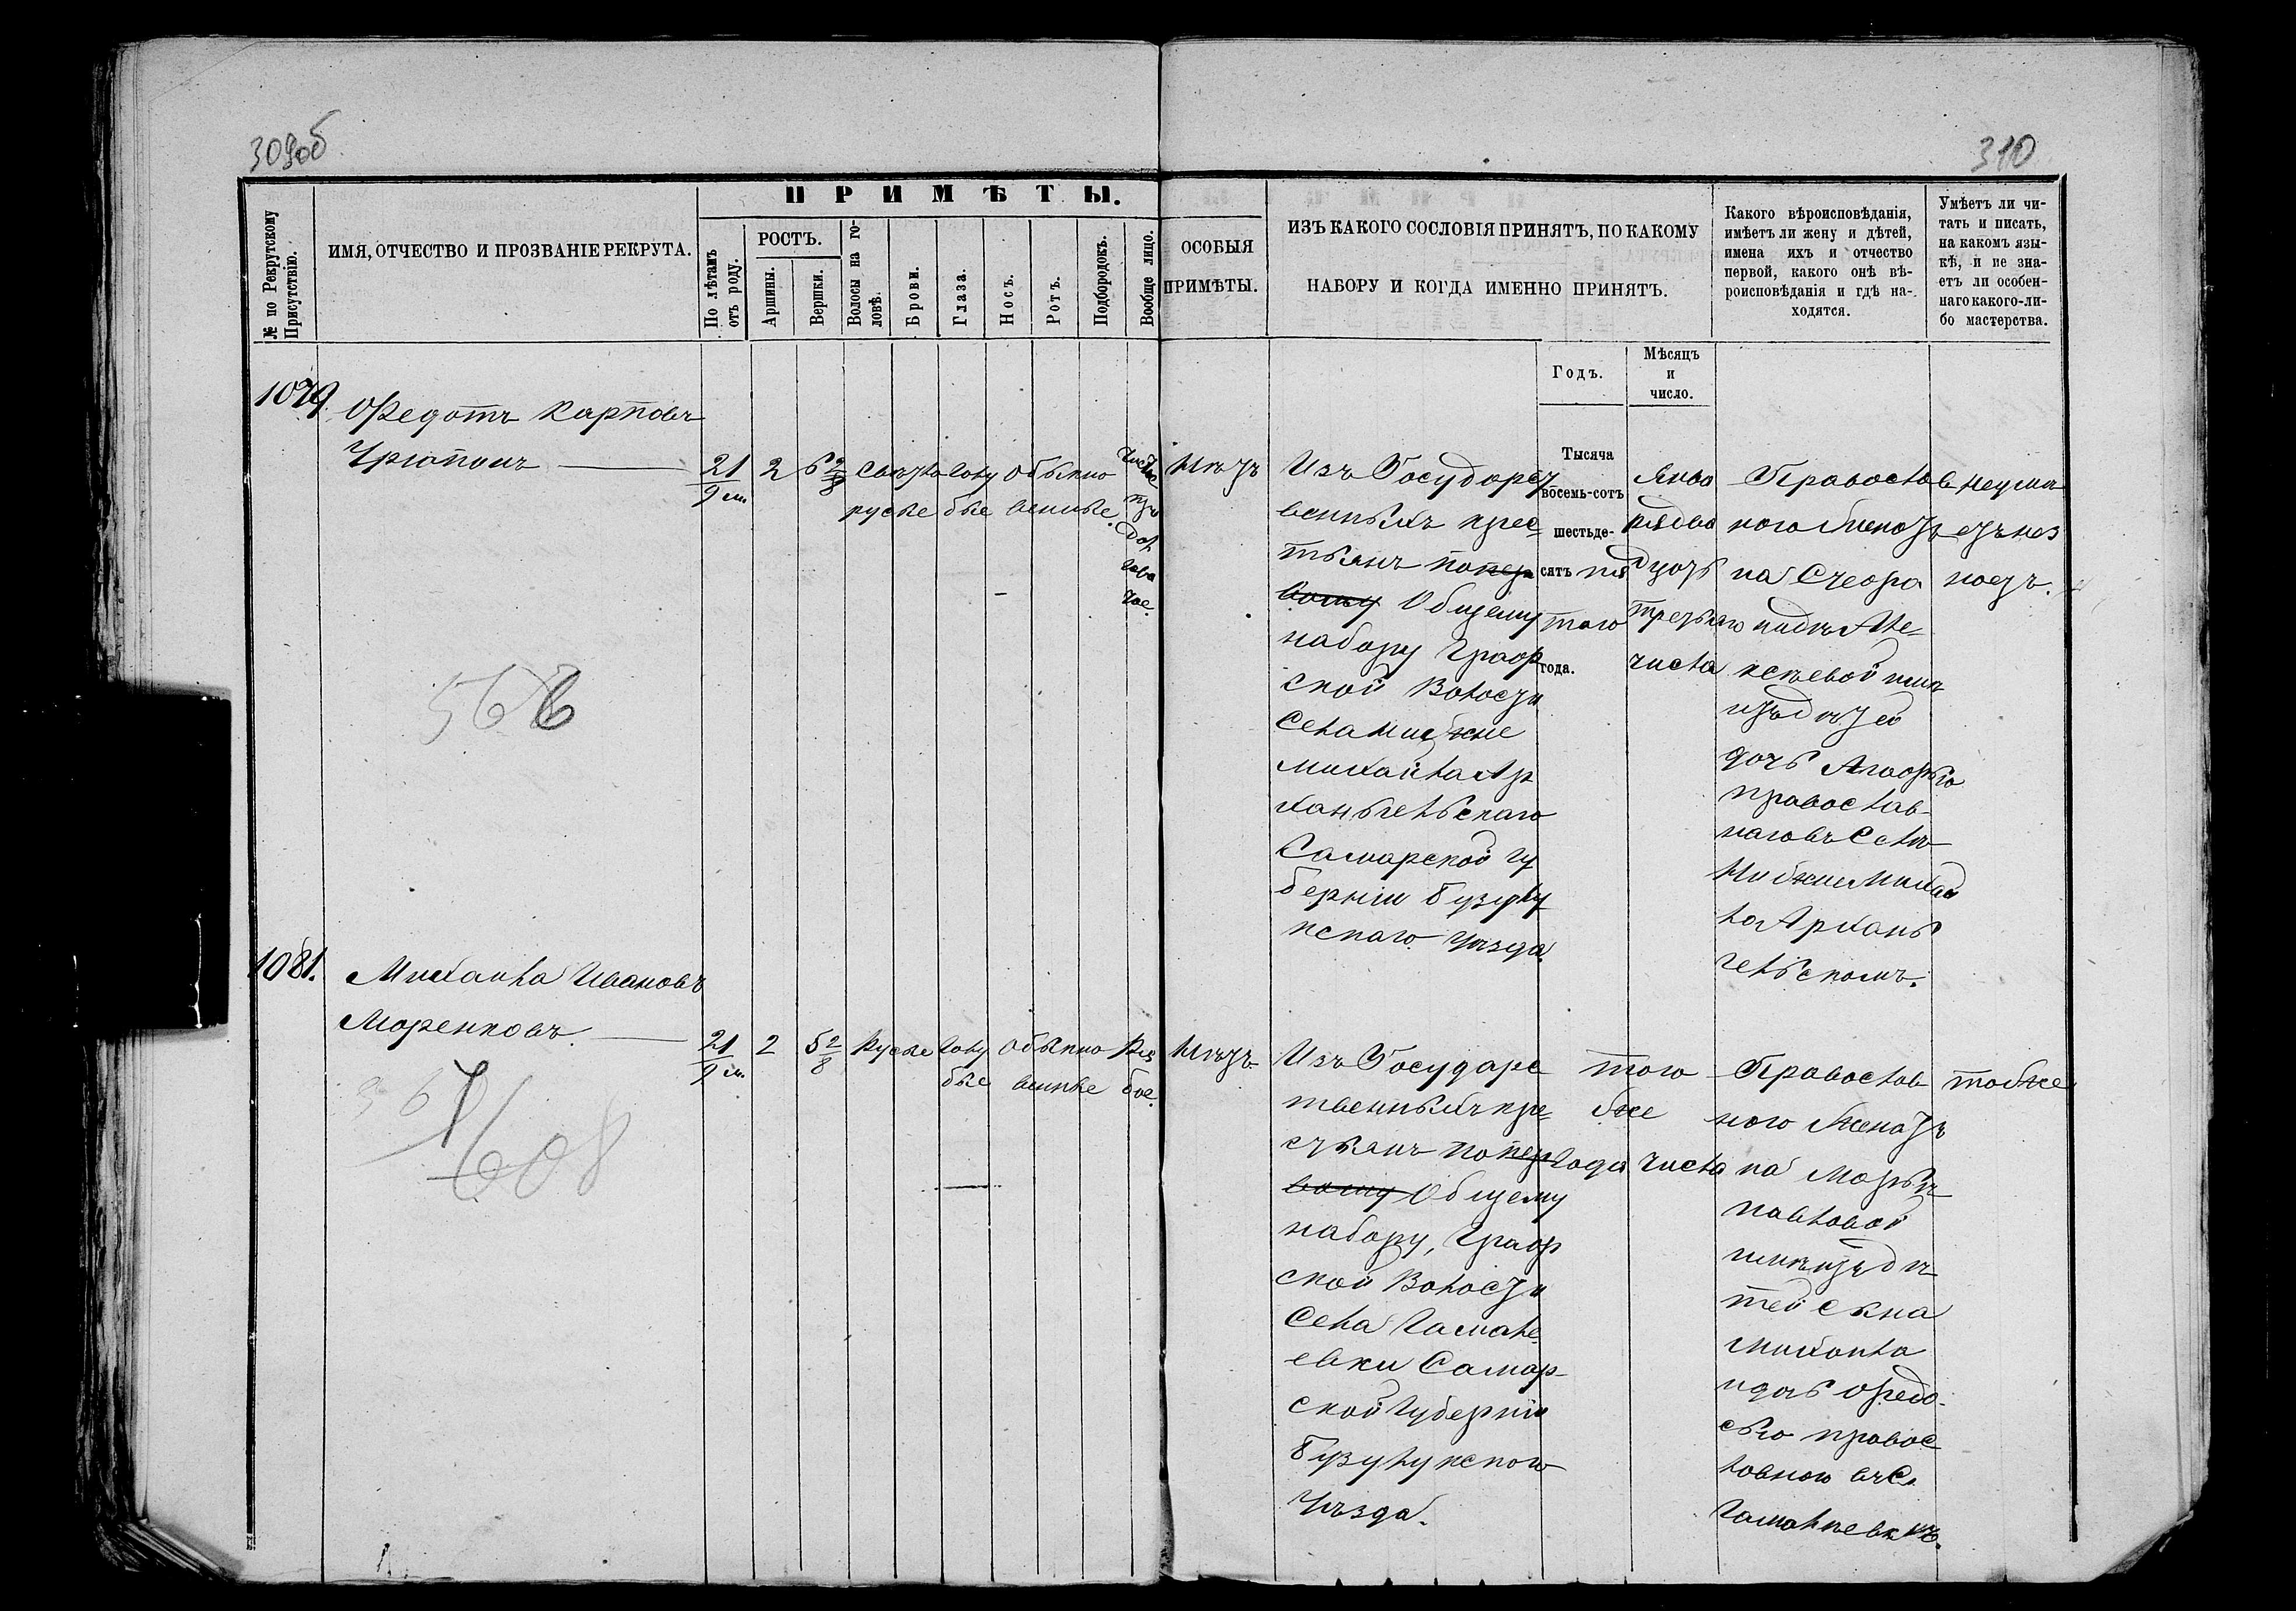 309об
310
ПРИМѢТЫ.
№ по Рекрутскому Присутствію.
ИМЯ, ОТЧЕСТВО И ПРОЗВАНІЕ РЕКРУТА.
По лѣтамъ отъ роду.
РОСТЪ.
Аршины.
Вершки.
Волосы на го-
ловѣ.
Брови.
Глаза.
Носъ.
Ротъ.
Подбородокъ.
Вообще лицо.
ОСОБЫЯ
ПРИМѢТЫ.
ИЗЪ КАКОГО СОСЛОВІЯ ПРИНЯТЪ, ПО КАКОМУ
НАБОРУ И КОГДА ИМЕННО ПРИНЯТЪ.
Какого вѣроисповѣданія,
имѣетъ ли жену и дѣтей,
имена ихъ и отчество
первой, какого онѣ вѣ-
роисповѣданія и гдѣ на-
ходятся.
Умѣетъ ли чи-
тать и писать,
на какомъ язы-
кѣ, и не зна-
етъ ли особен-
наго какого-ли-
бо мастерства.
Годъ.
Мѣсяцъ
и
число.
1079
Федотъ Карповъ
21
2
6 2/8
Свѣтло
русые
голу
бые
обыкно
венные
чистое
Нѣтъ
Изъ Государст
венныхъ крес
тьянъ по пер
вому Общему
набору Граф
ской Волости
Села Нижне
Михайло Ар
хангельскаго
Самарской гу
берніи Бузулу
кскаго уѣзда.
Тысяча
восемь-сотъ
шестьде-
сятъ пя
таго
года.
Янва
ря два
дцать
третьяго
числа
Православ
наго женатъ
на Ѳеодо
Але
ксѣевой имѣ
етъ дѣтей
дочь
православ
наго въ Селѣ
Нижне Михай
ло Архань
гельскомъ.
неумѣ
етъ не з
наетъ.
568
1081.
Михаила Ивановъ
Моренковъ.
21
2
5 2/8
Русые
голу
бые
обыкно
венные
Ря
бое.
Нѣтъ
Изъ Государс
твенныхъ кре
стьянъ по пер
вому Общему
набору, Граф
ской Волости
Села Гамале
евки Самар-
ской Губерніи
Бузулукскаго
Уѣзда.
того
же
года
числа
Православ
наго женатъ
на Марьѣ
Павловой
имѣетъ дѣ
тей сына
Михаила
и дочь Федо
сью правос
лавною въ С.
Гамалѣевкѣ.
тоже
608